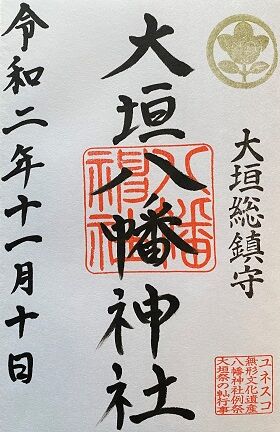 大垣総鎮守
大垣八幡神社
八幡
神社
令和二年十一月十日
ユネスコ
無形文化遺産
八幡神社例祭
大垣祭の軕行事